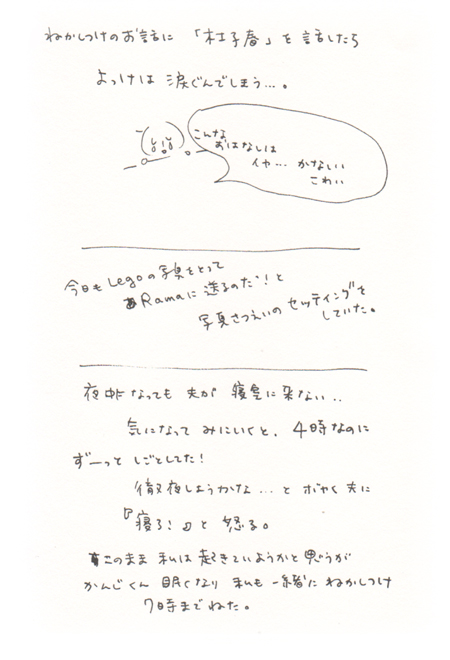 ねかしつけのお話に 「杜子春」を話したら
よっけは 涙ぐんでしまう…。
こんな
おはなしは
イヤ… かなしい
こわい
今日もLegoの写真をとって
Ramaに送るのだ!と
写真さつえいの セッティングを
していた。
夜中になっても 夫が 寝室に来ない..
気になって みにいくと、4時なのに
ずーっと しごとしてた!
徹夜しようかな…と ボヤく夫に
『寝ろ!』と 怒る。
このまま 私は起きていようかと思うが
かんじくん 眠くなり 私も一緒に ねかしつけ
7時までねた。